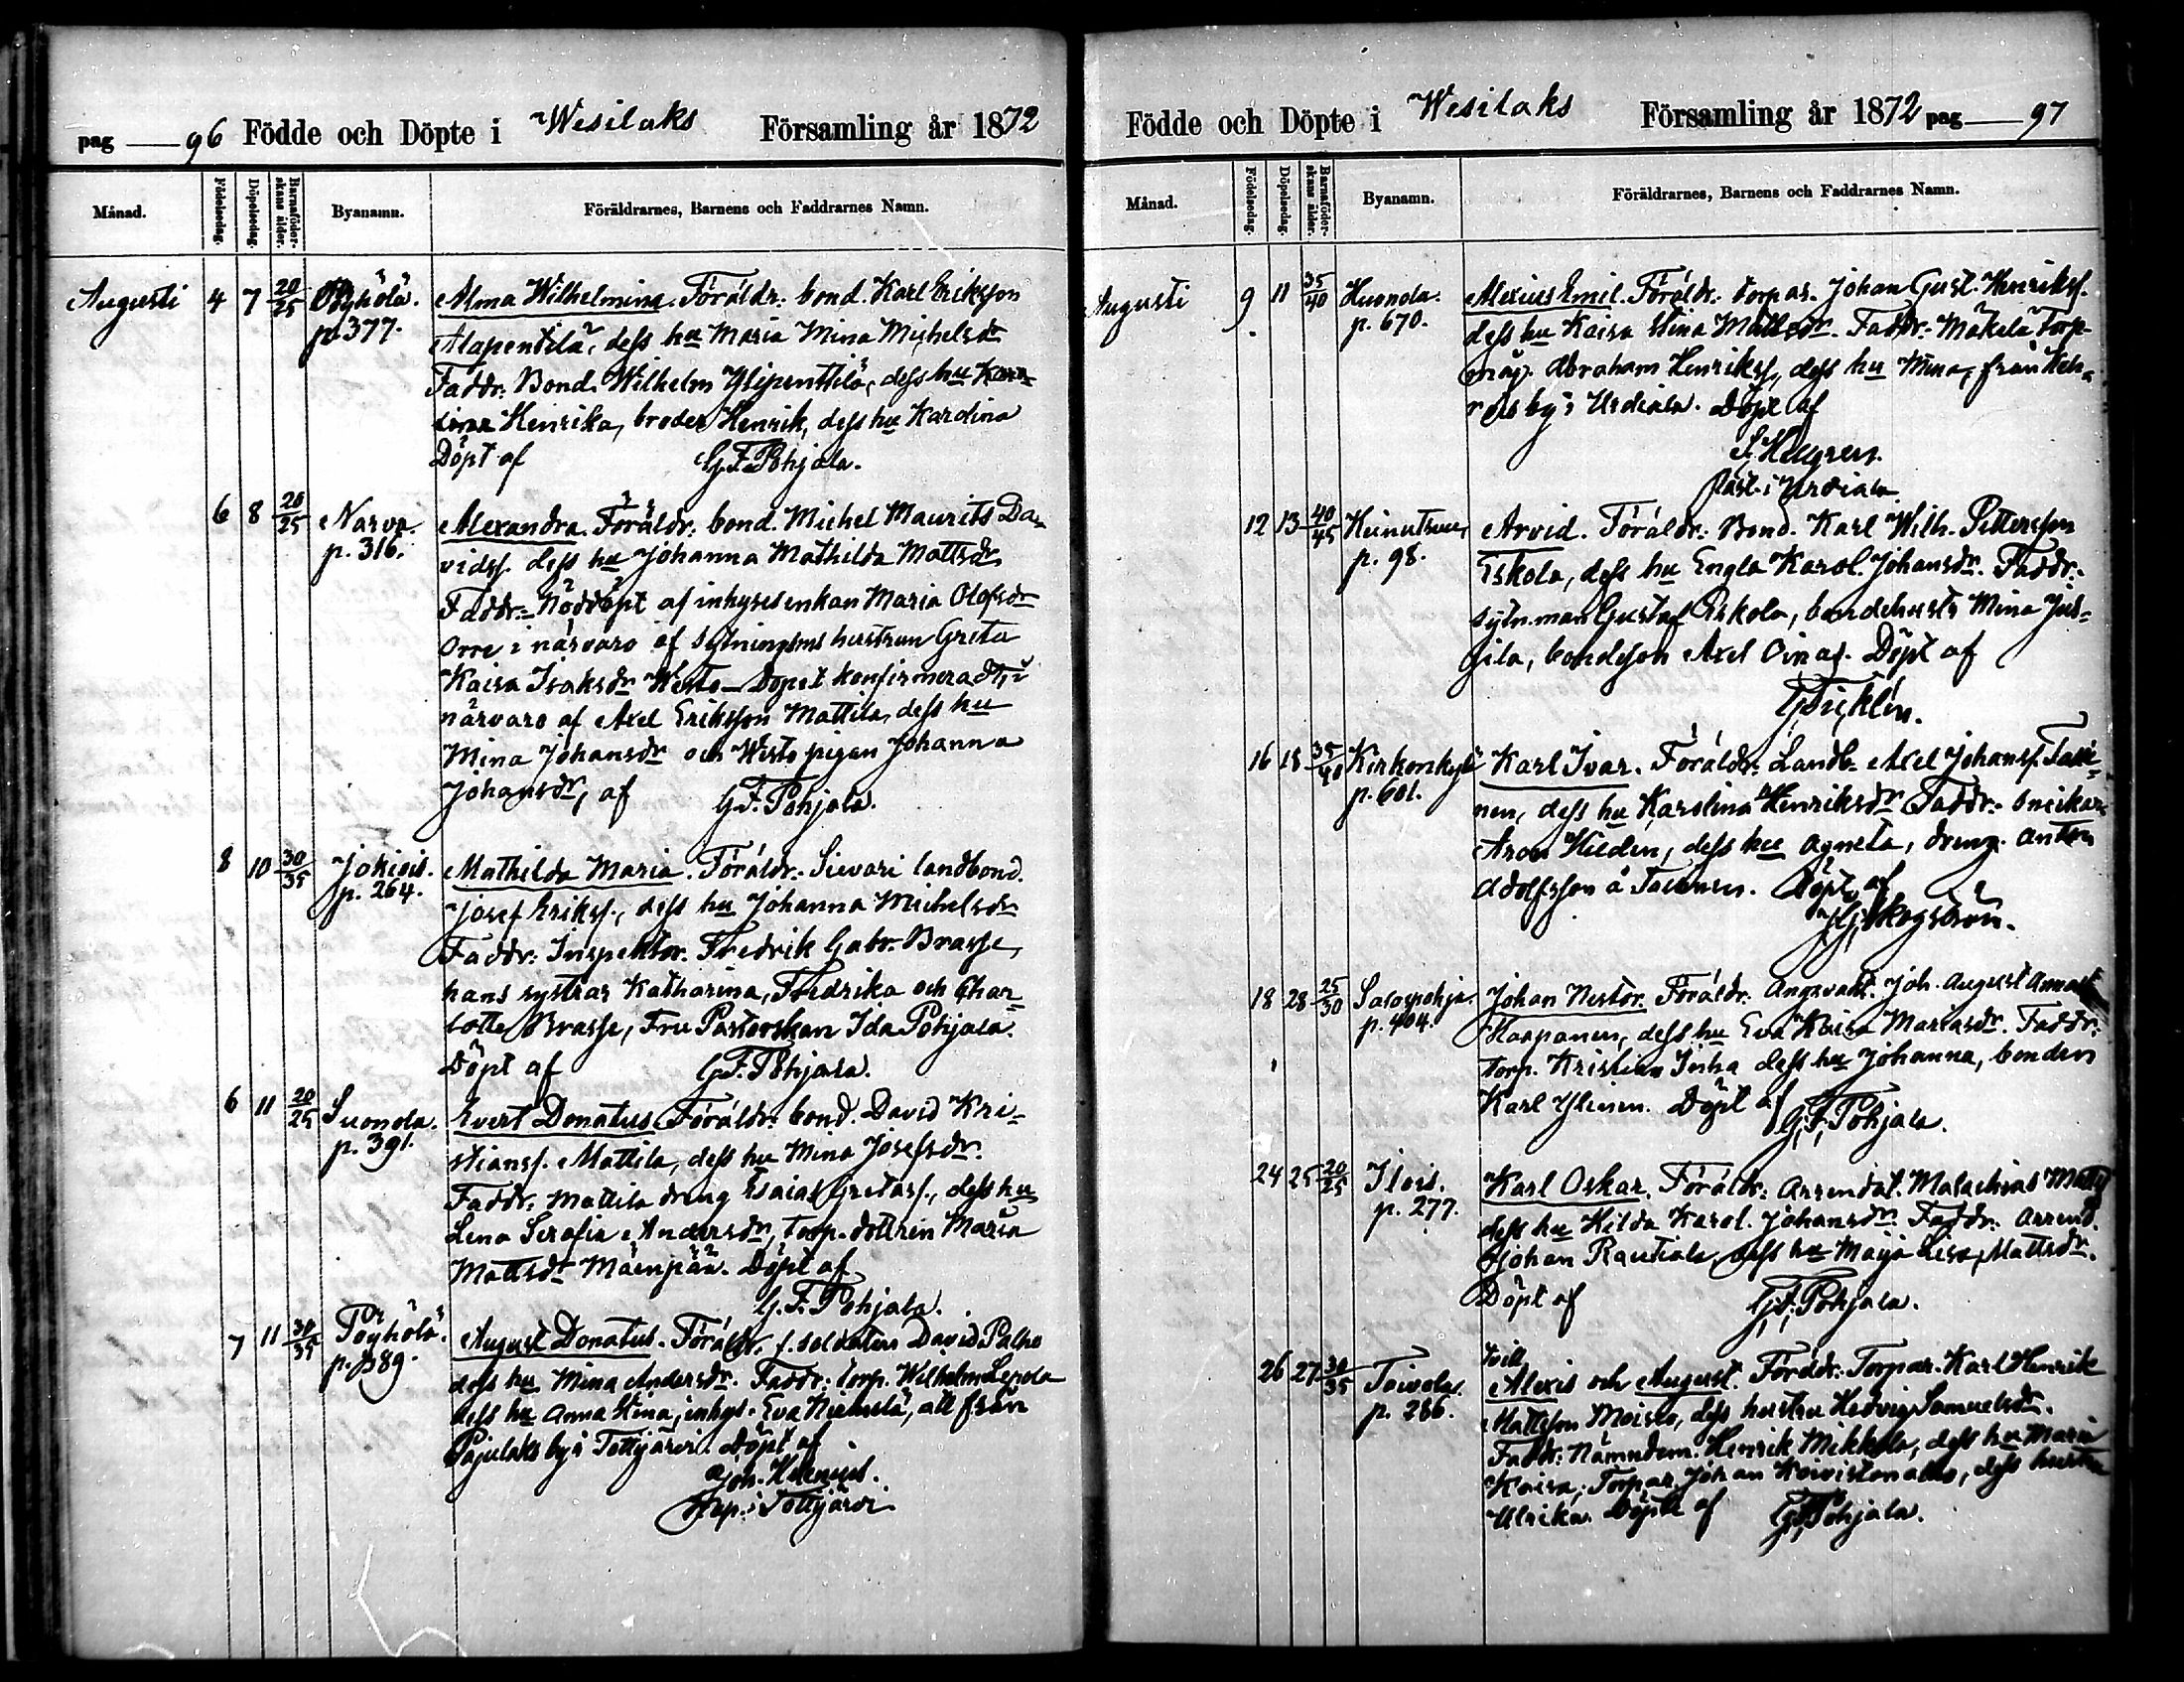 pag 96 Födde och Döpte i Wesilaks Församling år 1872
Månad. Födelsedag. Döpelsedag. Barnaföderskans ålder. Byanamn. Föräldrarnes, Barnens och Faddrarnes Namn.
Augusti 4 7 20/25 Pöyhölä. Alma Wilhelmina. Föräldr: bond. Karl Eriksson
p. 377. Alapentilä, dess hu Maria Mina Michelsdr
Faddr: Bond. Wilhelm Ylipenttilä, dess hu
Henrika, broder Henrik, dess hu Karolina
Döpt af G. F. Pohjala.
6 8 20/25 Narva Alexandra. Föräldr: bond. Michel Maurits Da-
p. 316. vidss. dess hu Johanna Mathilda Mattsdr
Faddr: Nöddöpt af inhyses enkan Maria Olofsdr
Orre i närvaro af sytningsms hustrun Greta
Kaisa Isaksdr Westo - Dopet konfirmeradt, i
närvaro af Axel Eriksson Mattila, dess hu
Mina Johansdr och Westo pigan Johanna
Johansdr, af G. F. Pohjala.
8 10 30/35 Jokiois. Mathilda Maria. Föräldr: Sievari landbond.
p. 264. Josef Erikss., dess hu Johanna Michelsdr
Faddr: Inspektor. Fredrik Gabr. Brasse,
hans systrar Katharina, Fredrika och Char-
lotte Brasse, Fru Pastorskan Ida Pohjala.
Döpt af G. F. Pohjala.
6 11 20/25 Suonola. Evert Donatus. Föräldr: bond. David Kri-
p. 391. stianss. Mattila, dess hu Mina Josefsdr.
Faddr: Mattila dreng Esaias Gretass., dess hu
Lena Serafia Andersdr, torp. dottren Maria
Mattsdr Mäenpää. Döpt af
G. F. Pohjala.
7 11 30/35 Pöyhölä. August Donatus. Föräldr. f. soldaten David Palho
p. 389. dess hu Mina Andersdr. Faddr: torp. Wilhelm Lepola
dess hu Anna Stina, inhys. Eva, all från
Pajulaks by i Tottijärvi. Döpt af
Joh. Helenius.
Kap. i Tottijärvi
Födde och Döpte i Wesilaks Församling år 1872 pag 97
Månad. Födelsedag. Döpelsedag. Barnaföderskans ålder. Byanamn. Föräldrarnes, Barnens och Faddrarnes Namn.
Augusti 9 11 35/40 Huonola. Alexius Emil. Föräldr: torpar. Johan Gust. Henrikss.
p. 670. dess hu Kaisa Stina Mattsdr. Faddr: Mäkelä torp-
måg. Abraham Henrikss, dess hu Mina, från Keh-
rois by i Urdiala. Döpt af
past. i Urdiala
12 13 40/45 Arvid. Föräldr: Bond. Karl Wilh. Pettersson
p. 98. Eskola, dess hu Engla Karol. Johansdr. Faddr:
sytn.man Gustaf Eskola, bondehustr Mina Jus-
sila, bondeson Axel Oinas. Döpt af
16 18 35/40 Kirkonkylä Karl Ivar. Föräldr: Landb. Axel Johanss. Tassi-
p. 601. nen, dess hu Karolina Henriksdr Faddr: snickar
Aron Hilden, dess hu Agneta, dreng. Anton
Adolfsson å Tassinen. Döpt af
Skogström.
18 28 25/30 Salospohja. Johan Nestor. Föräldr: Joh. August
p. 404. Karpanen, dess hu Eva Kaisa Mariasdr. Faddr:
torp. Kristian Inha dess hu Johanna, bonden
Karl Ylinen. Döpt af
G. F. Pohjala.
24 25 20/25 Ilois. Karl Oskar. Föräldr: Arrendat. Malachias Matts
p. 277. dess hu Hilda Karol. Johansdr. Faddr: Arrend.
Johan Rautiala, dess hu Maija Lisa Mattsdr.
Döpt af G. F. Pohjala.
26 27 30/35 Toivola. tvill. Alexis och August. Föräldr: Torpar. Karl Henrik
p. 286. Mattsson Moisio, dess hustru Hedvig Samuelsdr.
Faddr: Nämndem. Henrik Mikkola, dess hu Maria
Kaisa, Torpar. Johan Koivistonalho, dess hustru
Ulrika. Döpte af G. F. Pohjala.